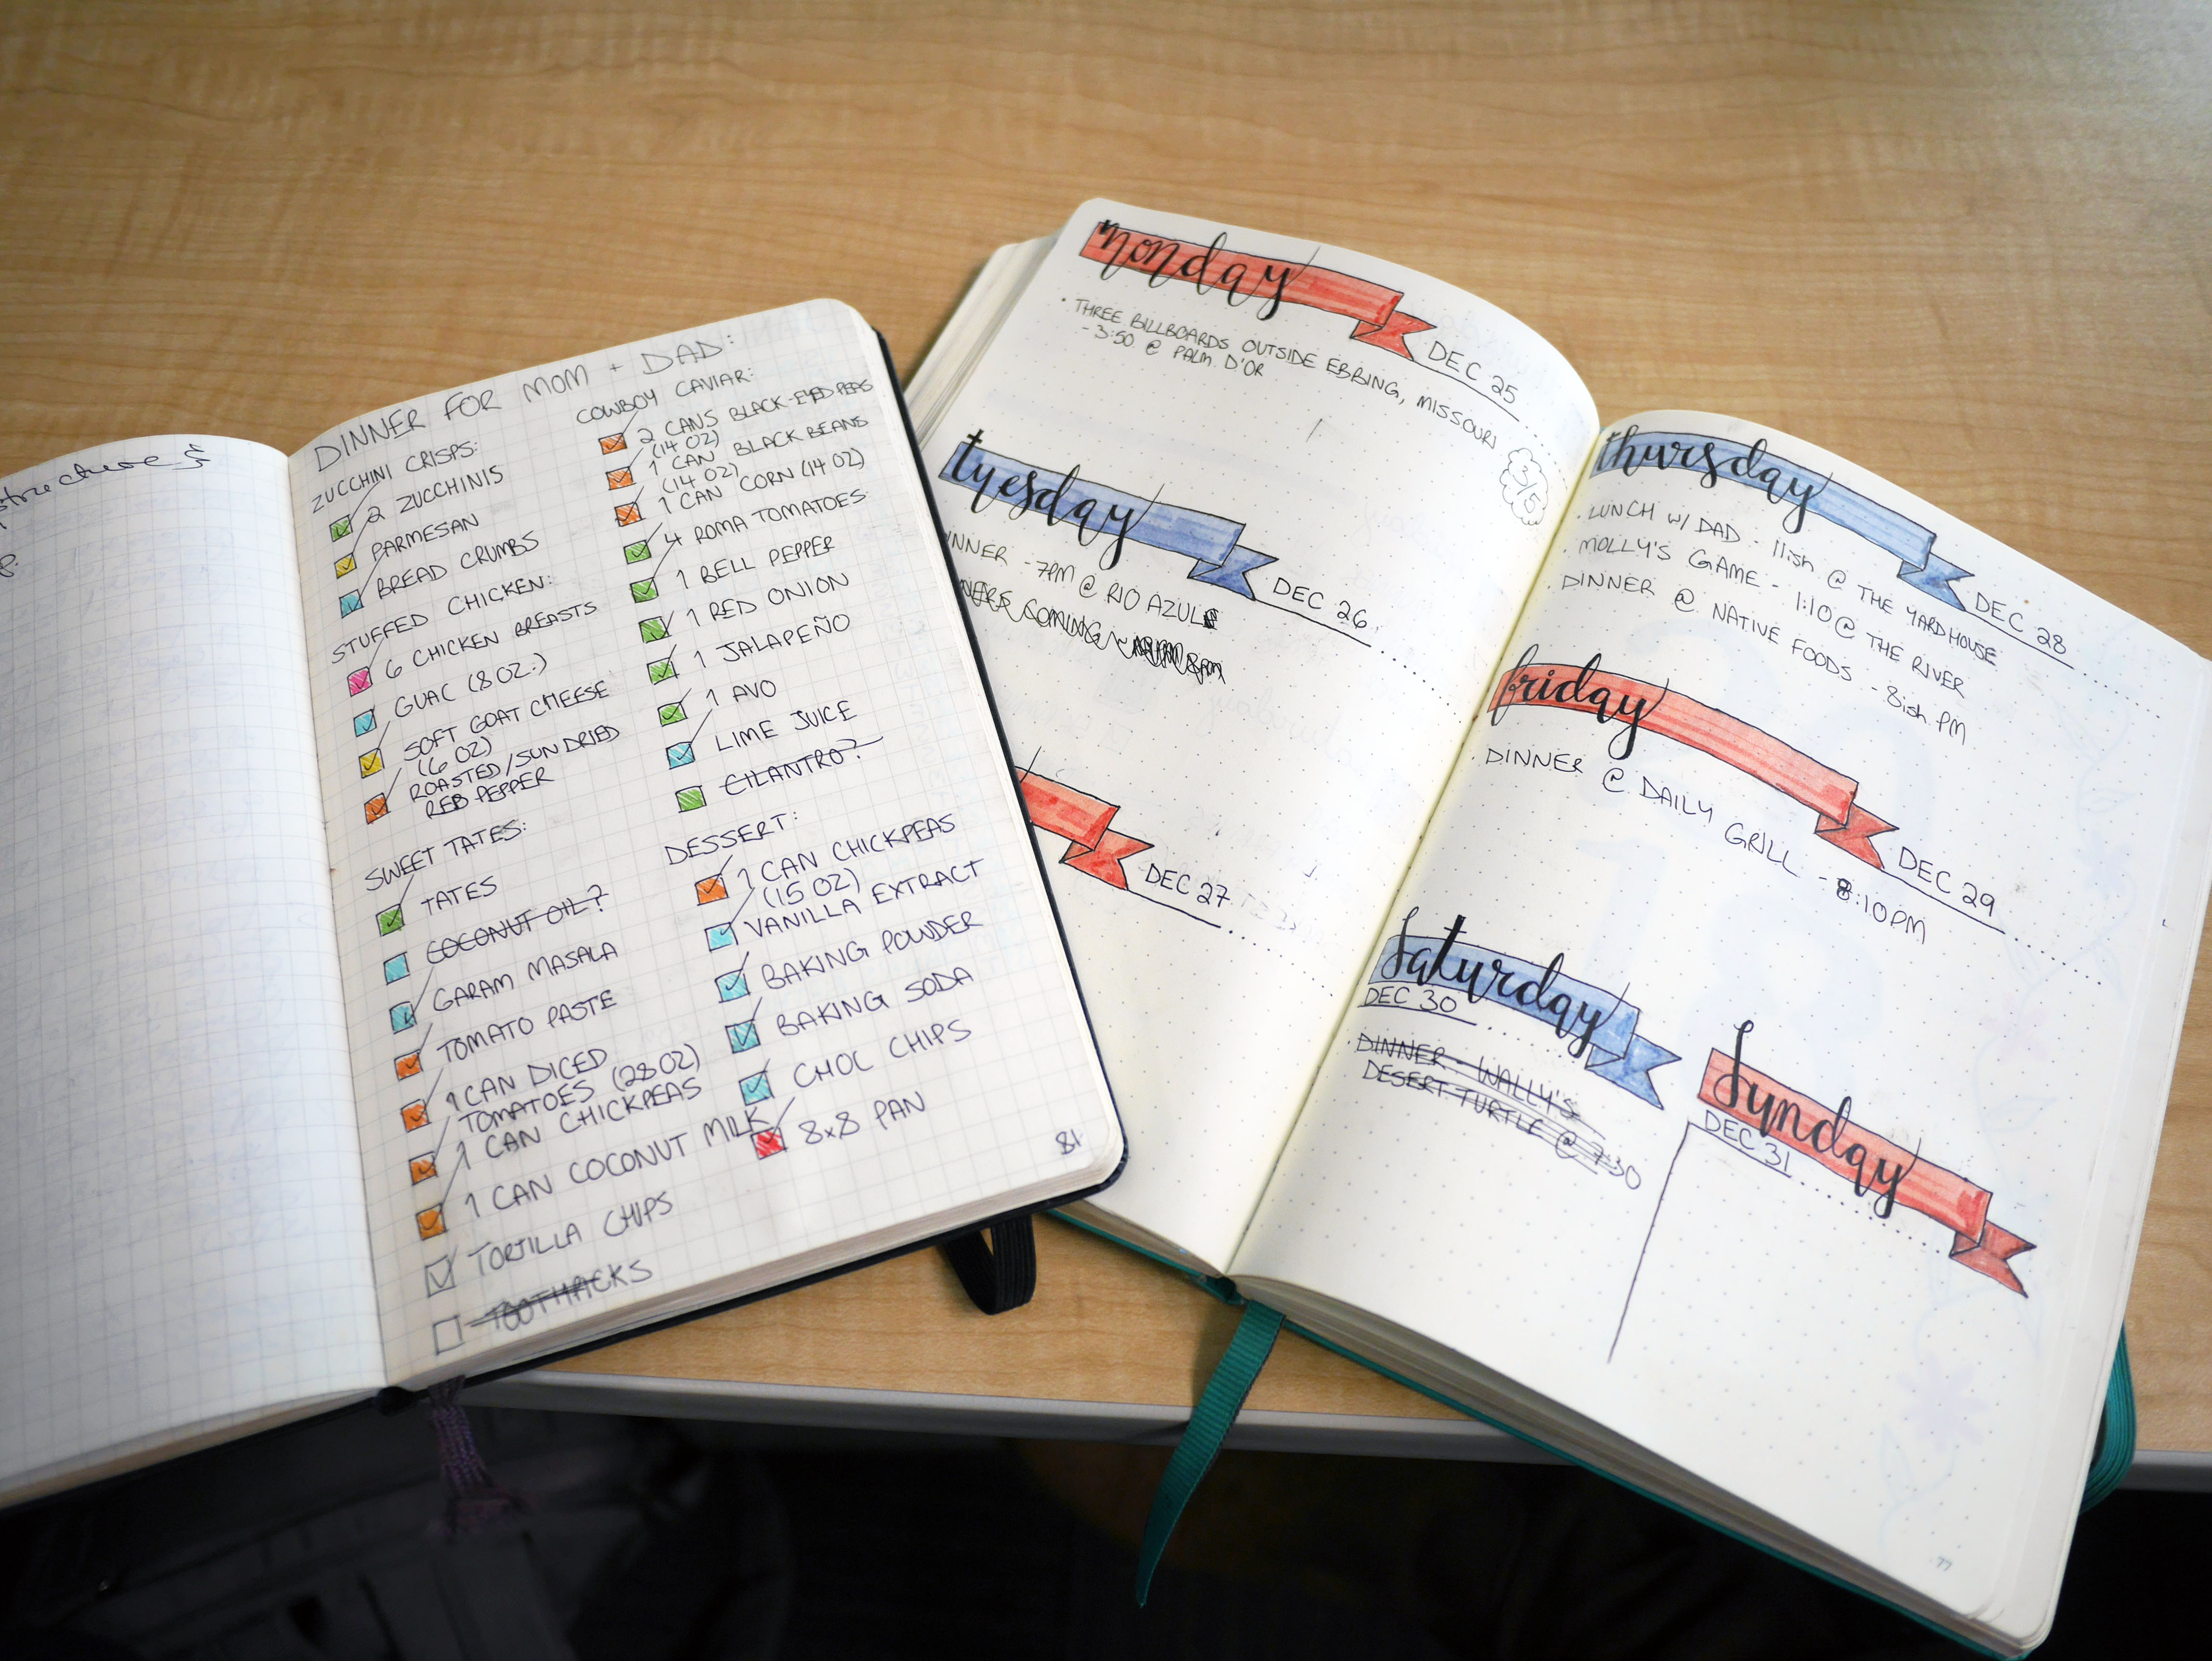 tructure &
DINNER FOR MOM + DAD:
ZUCCHINI CRISPS:
2 ZUCCHINIS
PARMESAN
BREAD CRUMBS
STUFFED CHICKEN:
6 CHICKEN BREASTS
GUAC (8 OZ.)
SOFT GOAT CHEESE
(6 OZ)
ROASTED/SUN DRIED
RED PEPPER
SWEET TATES:
TATES
COCONUT OIL?
GARAM MASALA
TOMATO PASTE
1 CAN DICED
TOMATOES (28 OZ)
1 CAN CHICKPEAS
1 CAN COCONUT MILK
TORTILLA CHIPS
COWBOY CAVIAR:
2 CANS BLACK-EYED PEAS
(14 OZ)
1 CAN BLACK BEANS
(14 OZ)
1 CAN CORN (14 OZ)
4 ROMA TOMATOES
1 BELL PEPPER
1 RED ONION
1 JALAPEÑO
1 AVO
LIME JUICE
CILANTRO?
DESSERT:
1 CAN CHICKPEAS
(15 OZ)
VANILLA EXTRACT
BAKING POWDER
BAKING SODA
CHOC CHIPS
8x8 PAN
81
monday
DEC 25
· THREE BILLBOARDS OUTSIDE EBBING, MISSOURI
- 3:50 @ PALM D'OR
3/5
tuesday
DEC 26
INNER - 7PM @ RIO AZUL
COMING
DEC 27
thursday
DEC 28
· LUNCH W/ DAD - 11ish @ THE YARDHOUSE
· MOLLY'S GAME - 1:10 @ THE RIVER
· DINNER @ NATIVE FOODS - 8ish PM
friday
DEC 29
· DINNER @ DAILY GRILL - 8:10PM
saturday
DEC 30
· DINNER - WALLY'S
DESERT TURTLE @ 7:30
sunday
DEC 31
77